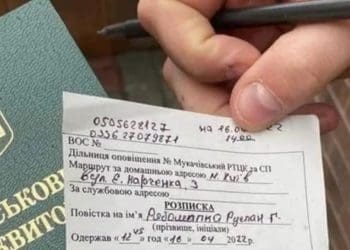 ЬКОВО-
ЕВИТО
0505628127
0336 27079871
на 16.04.22
14:00
ВОС №
Дільниця оповіщення № Мукачівський РТЦК за СП
Маршрут за домашньою адресою м. Київ
вул.
За службовою адресою
РОЗПИСКА
Повістка на ім'я Рябошапка Руслан Г.
(прізвище, ініціали)
Одержав «12⁴⁵» год «16» 04 2022р.